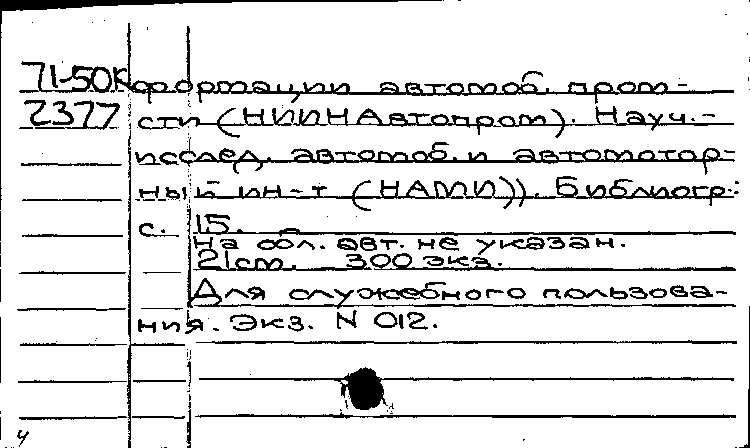 71-50к формации автомоб. пром-
2377 сти (НИИНАвтопром). Науч.-
исслед. автомоб. и автомотор-
ный ин-т (НАМИ)). Библиогр.:
с. 15.
На обл. авт. не указан.
21 см. 300 экз.
Для служебного пользова-
ния. Экз. N 012.
4